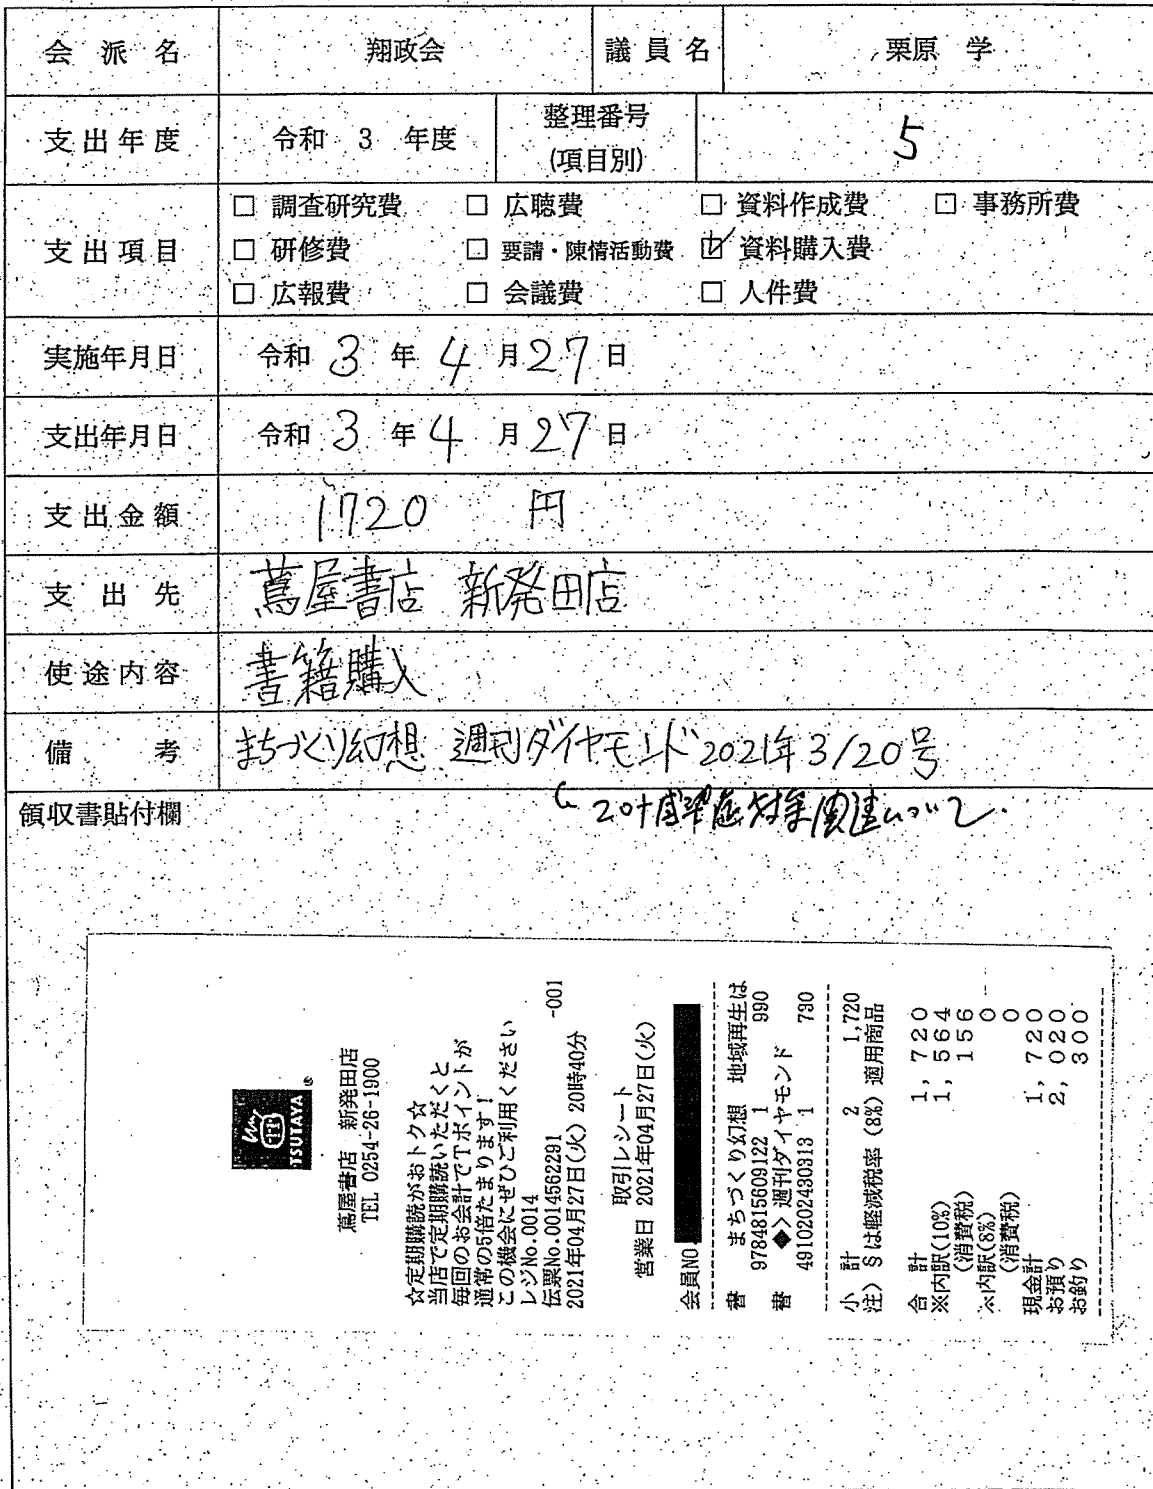 会派名 翔政会 議員名 栗原 学
支出年度 令和 3 年度 整理番号(項目別) 5
支出項目
□ 調査研究費 □ 広聴費 □ 資料作成費 □ 事務所費
□ 研修費 □ 要請・陳情活動費 ☑ 資料購入費
□ 広報費 □ 会議費 □ 人件費
実施年月日 令和 3 年 4 月 27 日
支出年月日 令和 3 年 4 月 27 日
支出金額 1720 円
支出先 蔦屋書店 新発田店
使途内容 書籍購入
備考 まちづくり幻想 週刊ダイヤモンド 2021年3/20号
領収書貼付欄
TSUTAYA
蔦屋書店 新発田店
TEL 0254-26-1900
☆定期購読がおトク☆
当店で定期購読いただくと
毎回のお会計でTポイントが
通常の5倍たまります!
この機会にぜひご利用ください
レジNo.0014
伝票No.0014562291 -001
2021年04月27日(火) 20時40分
取引レシート
営業日 2021年04月27日(火)
会員NO
書 まちづくり幻想 地域再生は
9784815609122 1 990
書 ◆> 週刊ダイヤモンド
4910202430313 1 730
小 計 2 1,720
注) Sは軽減税率 (8%) 適用商品
合 計 1,720
※内訳(10%) 1,564
(消費税) 156
※内訳(8%) 0
(消費税) 0
現金計 1,720
お預り 2,020
お釣り 300